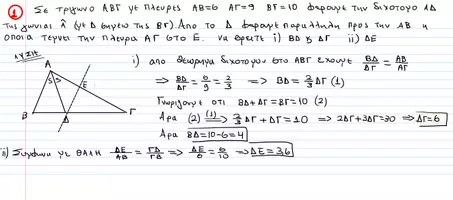 ① Σε τριγωνο ΑΒΓ με πλευρες ΑΒ=6 ΑΓ=9 ΒΓ=10 φερουμε την διχοτομο ΑΔ
της γωνιας Α̂ (με Δ σημειο της ΒΓ). Απο το Δ φερουμε παραλληλη προς την ΑΒ η
οποια τεμνει την πλευρα ΑΓ στο Ε. να βρειτε i) ΒΔ & ΔΓ ii) ΔΕ
ΛΥΣΗ
i) απο θεωρημα διχοτομου στο ΑΒΓ εχουμε ΒΔ/ΔΓ = ΑΒ/ΑΓ
⇒ ΒΔ/ΔΓ = 6/9 = 2/3 ⇒ ΒΔ = 2/3 ΔΓ (1)
Γνωριζουμε οτι ΒΔ + ΔΓ = ΒΓ = 10 (2)
Αρα (2) (1)⇒ 2/3 ΔΓ + ΔΓ = 10 ⇒ 2ΔΓ + 3ΔΓ = 30 ⇒ ΔΓ = 6
Αρα ΒΔ = 10 - 6 = 4
Α
Ε
Β
Δ
Γ
ii) Συμφωνα με ΘΑΛΗ ΔΕ/ΑΒ = ΓΔ/ΓΒ ⇒ ΔΕ/6 = 6/10 ⇒ ΔΕ = 3,6